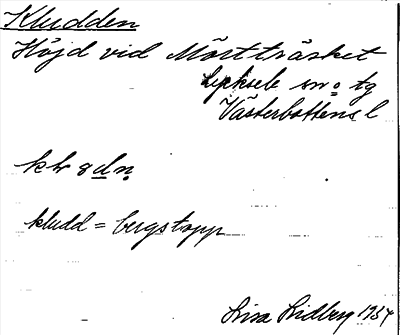 Kludden
Höjd vid Mörtträsket
Lycksele sn o tg
Västerbottens l
kludd = bergstopp
Lisa Lidberg 1934